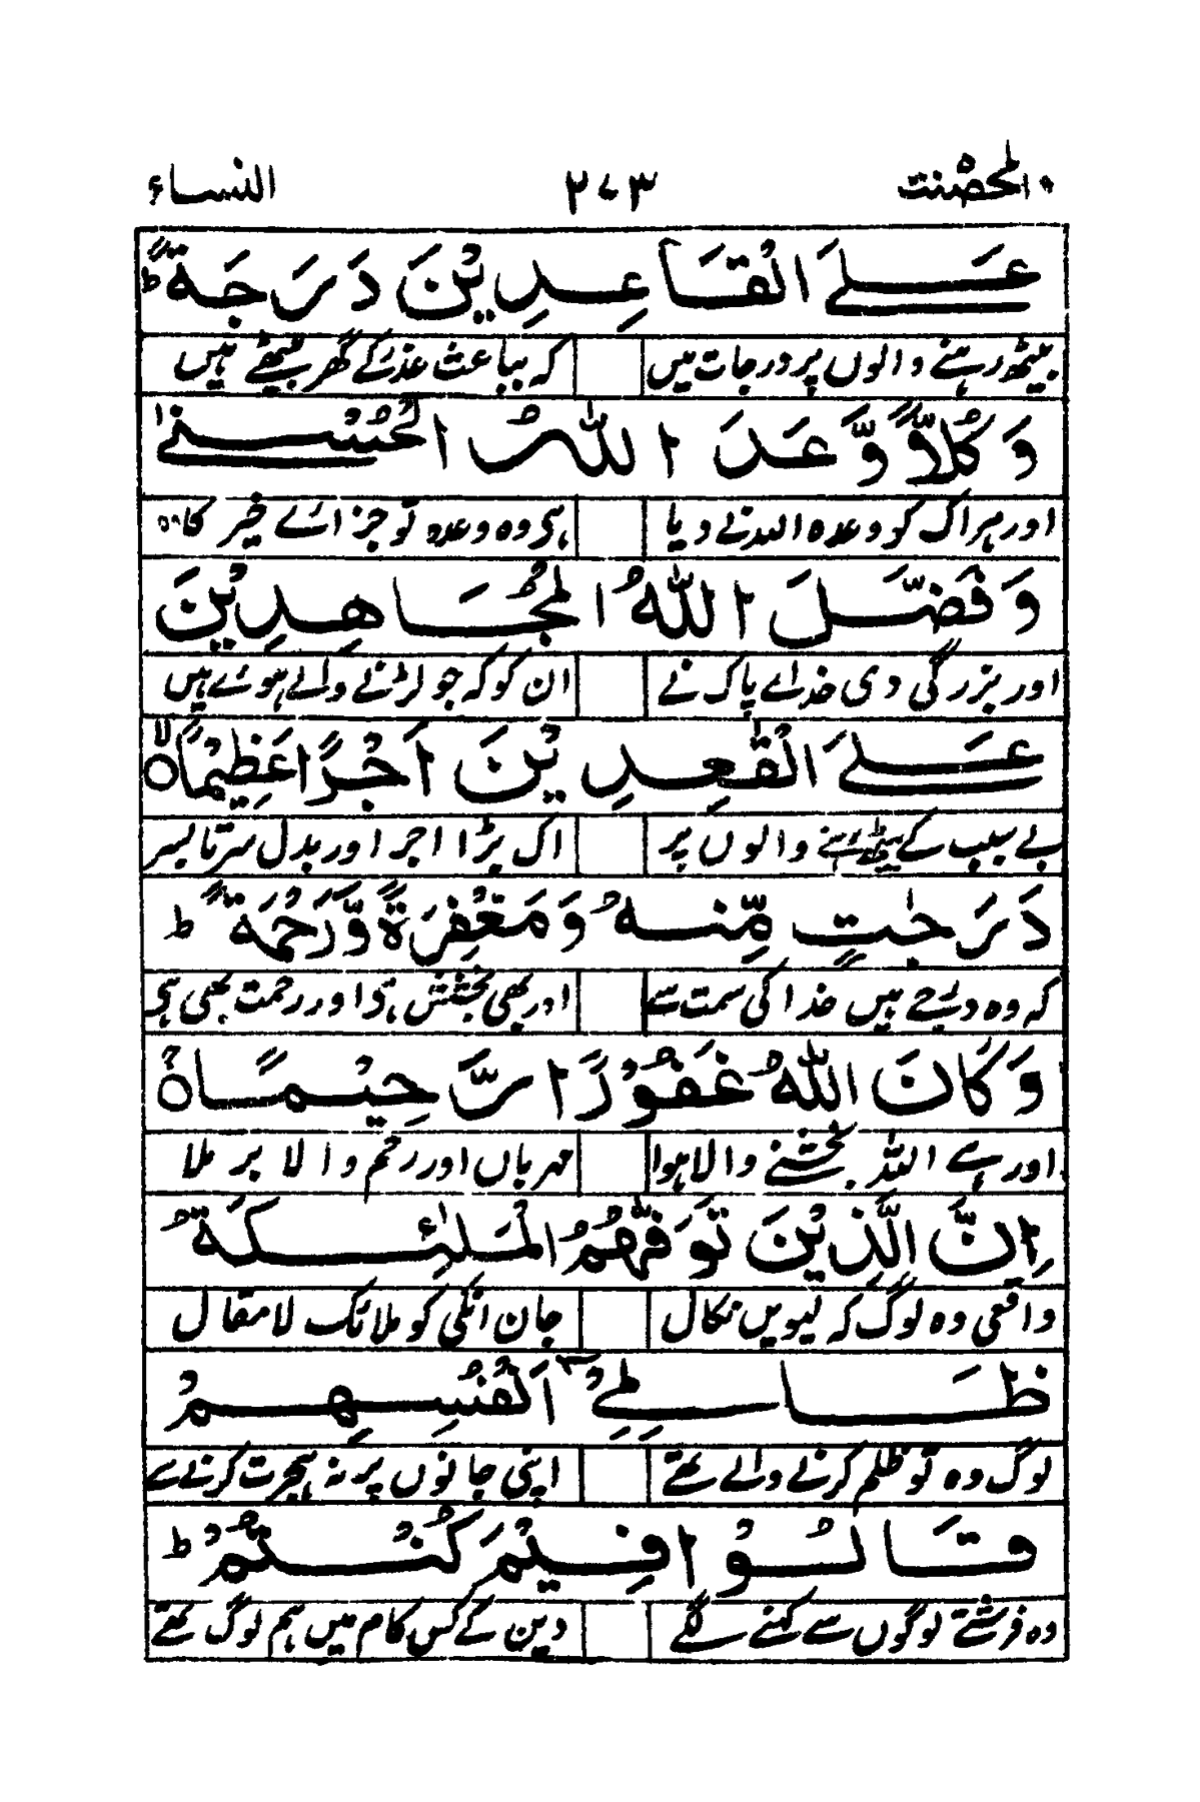 المحصنت ۵ ۲۷۳ النساء
عَلَى الْقَاعِدِيْنَ دَرَجَةً ؕ
بیٹھ رہنے والوں پر درجات میں کہ بباعث عذر کے گھر بیٹھے ہیں
وَكُلًّا وَّعَدَ اللّٰهُ الْحُسْنٰى
اور ہر اک کو وعدہ اللہ نے دیا ہی وہ وعدہ تو جزائے خیر کا
وَفَضَّلَ اللّٰهُ الْمُجَاهِدِيْنَ
اور بزرگی دی خدائے پاک نے ان کو کہ جو لڑنے والے ہوئے ہیں
عَلَى الْقٰعِدِيْنَ اَجْرًا عَظِيْمًا ۙ
بے سبب کے بیٹھ رہنے والوں پر اک بڑا اجر اور بدل سرتابسر
دَرَجٰتٍ مِّنْهُ وَمَغْفِرَةً وَّرَحْمَةً ؕ
کہ وہ درجے ہیں خدا کی سمت سے اور بھی بخشش ہی اور رحمت بھی ہی
وَكَانَ اللّٰهُ غَفُوْرًا رَّحِيْمًا
اور ہے اللہ بخشنے والا ہوا مہرباں اور رحم والا برملا
اِنَّ الَّذِيْنَ تَوَفّٰهُمُ الْمَلٰٓئِكَةُ
واقعی وہ لوگ کہ لیویں نکال جان انکی کو ملائک لامقال
ظَالِمِيْٓ اَنْفُسِهِمْ
لوگ وہ تو ظلم کرنے والے تھے اپنی جانوں پر نہ ہجرت کرنے سے
قَالُوْا فِيْمَ كُنْتُمْ ؕ
وہ فرشتے لوگوں سے کہنے لگے دین کے کس کام میں ہم لوگ تھے